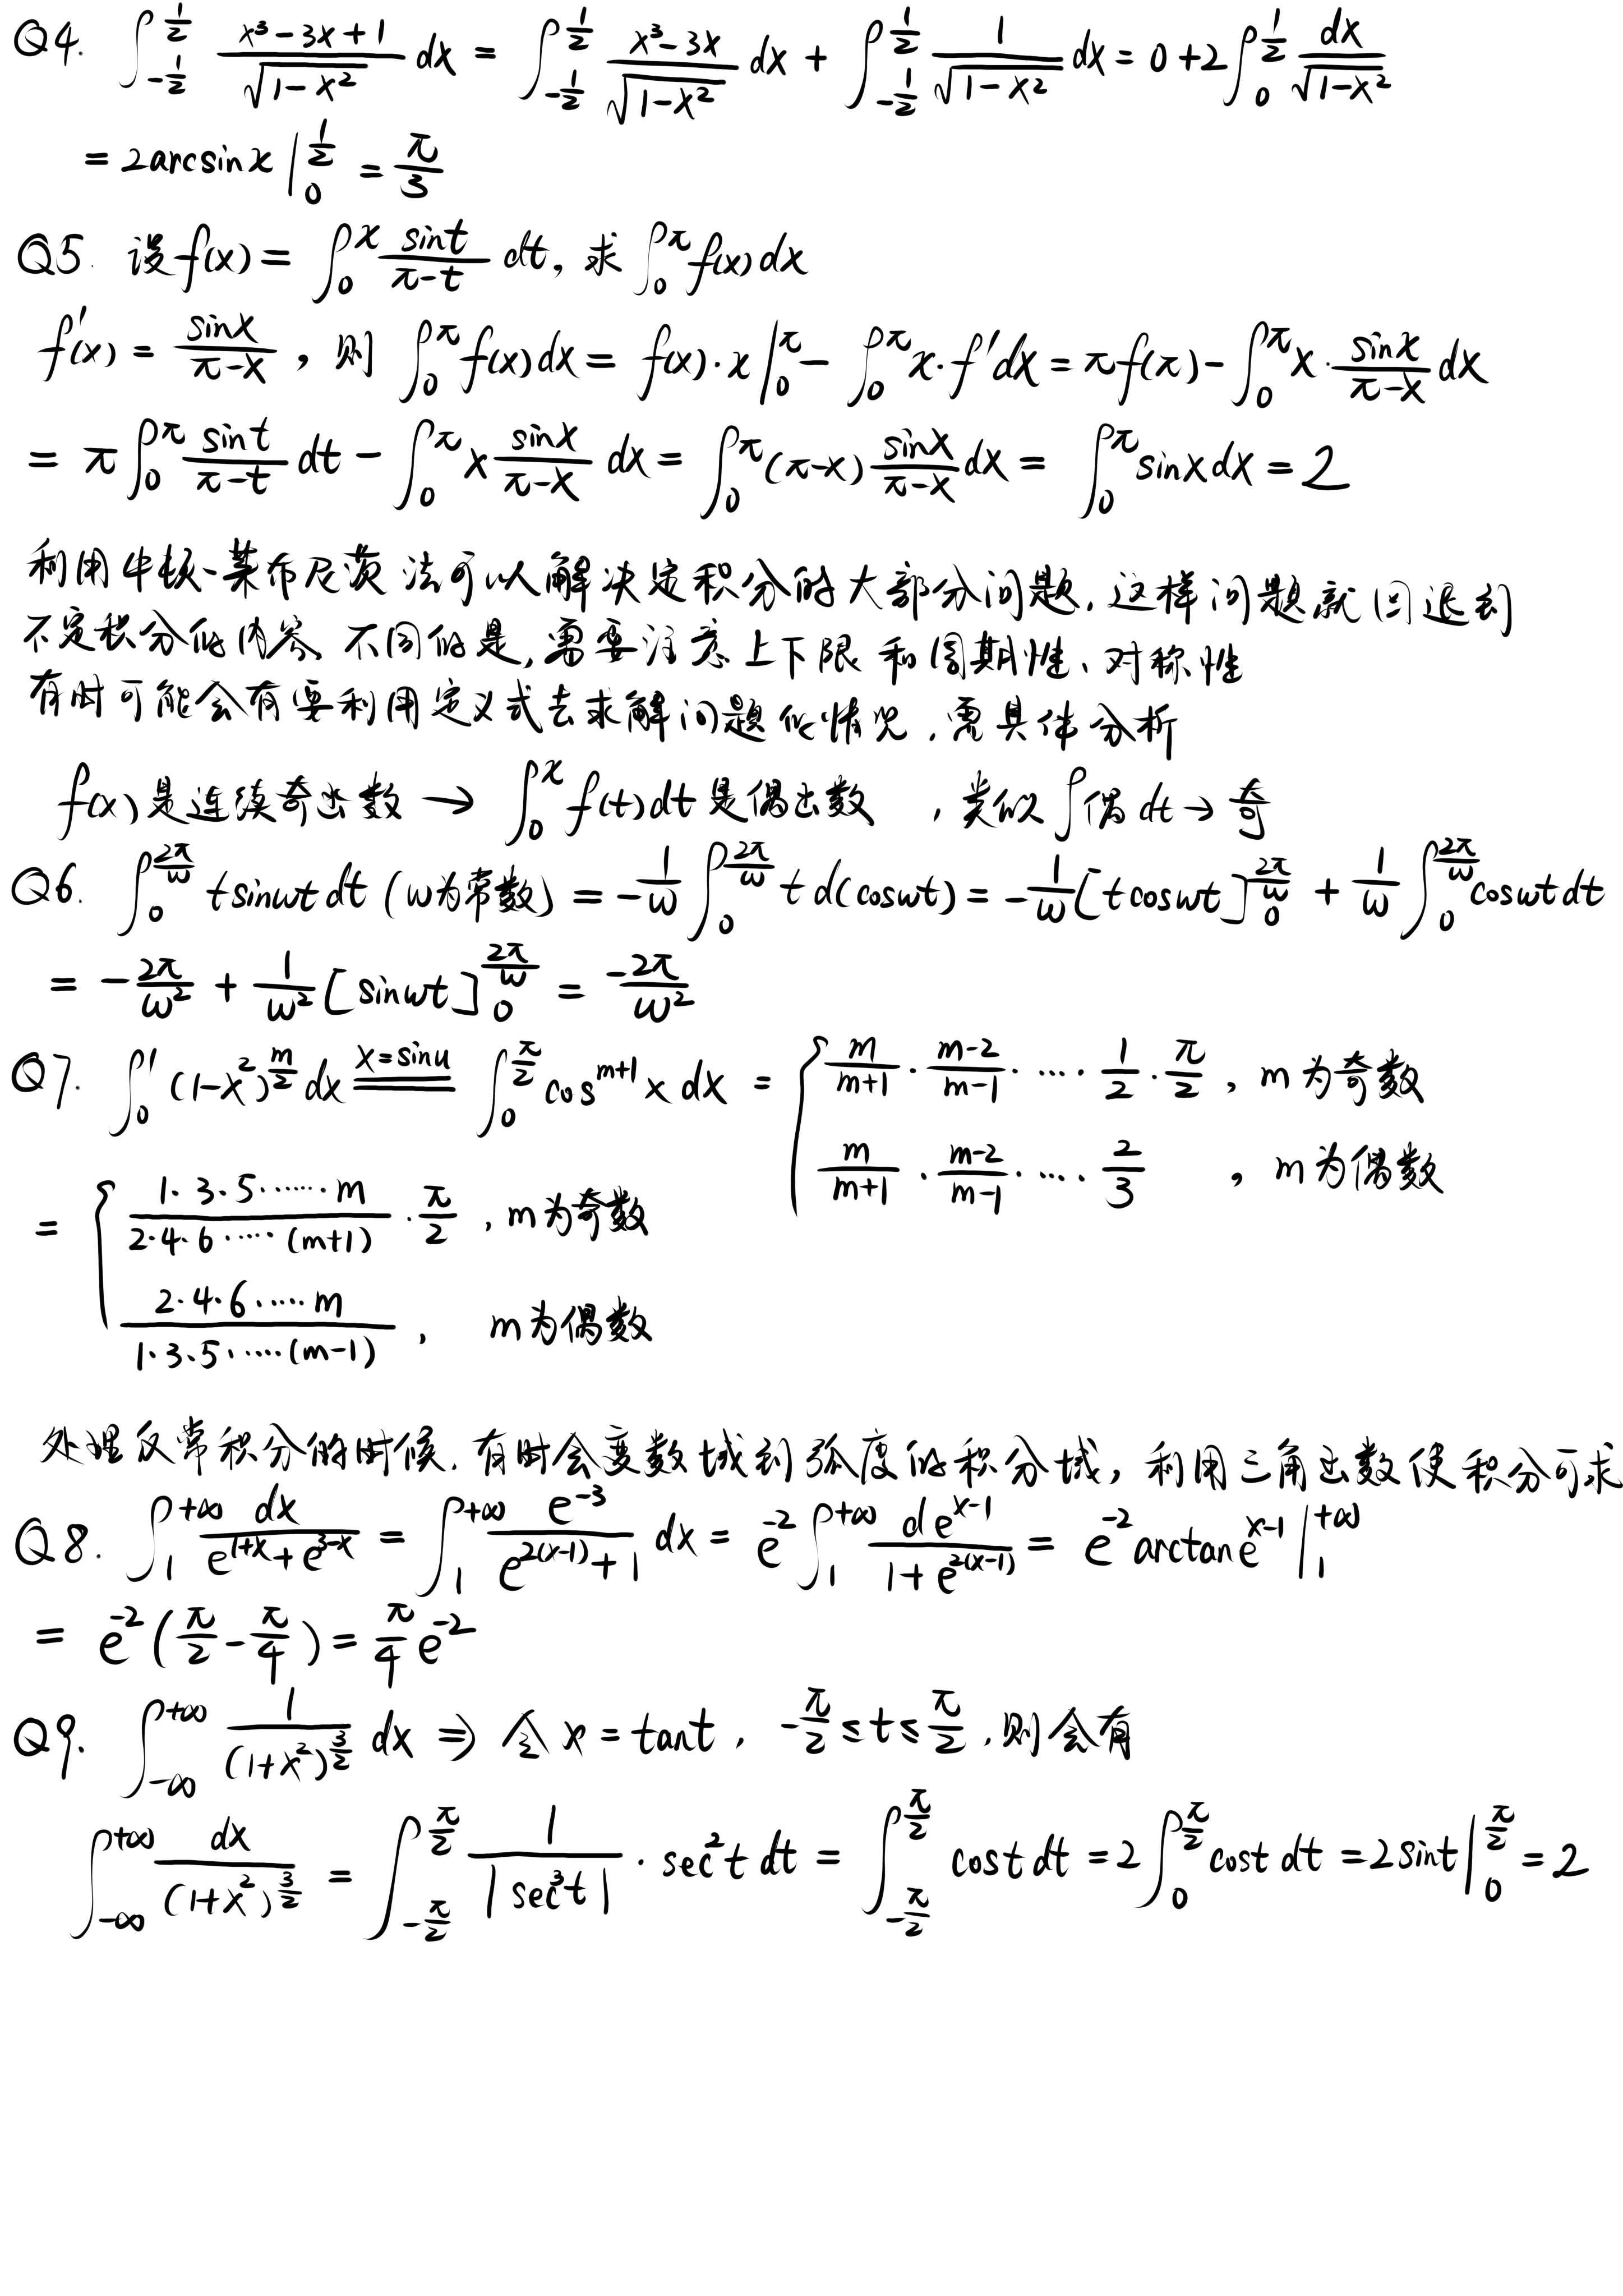 Q4. $\int_{-\frac{1}{2}}^{\frac{1}{2}} \frac{x^3-3x+1}{\sqrt{1-x^2}} dx = \int_{-\frac{1}{2}}^{\frac{1}{2}} \frac{x^3-3x}{\sqrt{1-x^2}} dx + \int_{-\frac{1}{2}}^{\frac{1}{2}} \frac{1}{\sqrt{1-x^2}} dx = 0+2\int_0^{\frac{1}{2}} \frac{dx}{\sqrt{1-x^2}}$
$= 2\arcsin x \Big|_0^{\frac{1}{2}} = \frac{\pi}{3}$
Q5. 设 $f(x) = \int_0^x \frac{\sin t}{\pi-t} dt$, 求 $\int_0^\pi f(x) dx$
$f'(x) = \frac{\sin x}{\pi-x}$, 则 $\int_0^\pi f(x) dx = f(x) \cdot x \Big|_0^\pi - \int_0^\pi x \cdot f' dx = \pi f(\pi) - \int_0^\pi x \cdot \frac{\sin x}{\pi-x} dx$
$= \pi \int_0^\pi \frac{\sin t}{\pi-t} dt - \int_0^\pi x \frac{\sin x}{\pi-x} dx = \int_0^\pi (\pi-x) \frac{\sin x}{\pi-x} dx = \int_0^\pi \sin x dx = 2$
利用牛顿-莱布尼茨法可以解决定积分的大部分问题, 这样问题就回退到
不定积分的内容, 不同的是, 需要注意上下限和周期性、对称性
有时可能会有要利用定义式去求解问题的情况, 需具体分析
$f(x)$ 是连续奇函数 $\to \int_0^x f(t) dt$ 是偶函数 , 类似 $\int$ 偶 $dt \to$ 奇
Q6. $\int_0^{\frac{2\pi}{\omega}} t \sin \omega t dt$ ($\omega$为常数) $= -\frac{1}{\omega} \int_0^{\frac{2\pi}{\omega}} t d(\cos \omega t) = -\frac{1}{\omega} [t \cos \omega t]_0^{\frac{2\pi}{\omega}} + \frac{1}{\omega} \int_0^{\frac{2\pi}{\omega}} \cos \omega t dt$
$= -\frac{2\pi}{\omega^2} + \frac{1}{\omega^2} [\sin \omega t]_0^{\frac{2\pi}{\omega}} = \frac{-2\pi}{\omega^2}$
Q7. $\int_0^1 (1-x^2)^{\frac{m}{2}} dx \overset{x=\sin u}{=\!=\!=} \int_0^{\frac{\pi}{2}} \cos^{m+1} x dx = \begin{cases} \frac{m}{m+1} \cdot \frac{m-2}{m-1} \cdot \cdots \cdot \frac{1}{2} \cdot \frac{\pi}{2}, & m为奇数 \\ \frac{m}{m+1} \cdot \frac{m-2}{m-1} \cdot \cdots \cdot \frac{2}{3}, & m为偶数 \end{cases}$
$= \begin{cases} \frac{1 \cdot 3 \cdot 5 \cdot \cdots \cdot m}{2 \cdot 4 \cdot 6 \cdot \cdots \cdot (m+1)} \cdot \frac{\pi}{2}, & m为奇数 \\ \frac{2 \cdot 4 \cdot 6 \cdot \cdots \cdot m}{1 \cdot 3 \cdot 5 \cdot \cdots \cdot (m-1)}, & m为偶数 \end{cases}$
处理反常积分的时候, 有时会变数域到弧度的积分域, 利用三角函数使积分可求
Q8. $\int_1^{+\infty} \frac{dx}{e^{1+x}+e^{3-x}} = \int_1^{+\infty} \frac{e^{-3}}{e^{2(x-1)}+1} dx = e^{-2} \int_1^{+\infty} \frac{d e^{x-1}}{1+e^{2(x-1)}} = e^{-2} \arctan e^{x-1} \Big|_1^{+\infty}$
$= e^{-2} (\frac{\pi}{2} - \frac{\pi}{4}) = \frac{\pi}{4} e^{-2}$
Q9. $\int_{-\infty}^{+\infty} \frac{1}{(1+x^2)^{\frac{3}{2}}} dx \Rightarrow$ 令 $x = \tan t$, $-\frac{\pi}{2} \le t \le \frac{\pi}{2}$, 则会有
$\int_{-\infty}^{+\infty} \frac{dx}{(1+x^2)^{\frac{3}{2}}} = \int_{-\frac{\pi}{2}}^{\frac{\pi}{2}} \frac{1}{|\sec^3 t|} \cdot \sec^2 t dt = \int_{-\frac{\pi}{2}}^{\frac{\pi}{2}} \cos t dt = 2\int_0^{\frac{\pi}{2}} \cos t dt = 2\sin t \Big|_0^{\frac{\pi}{2}} = 2$